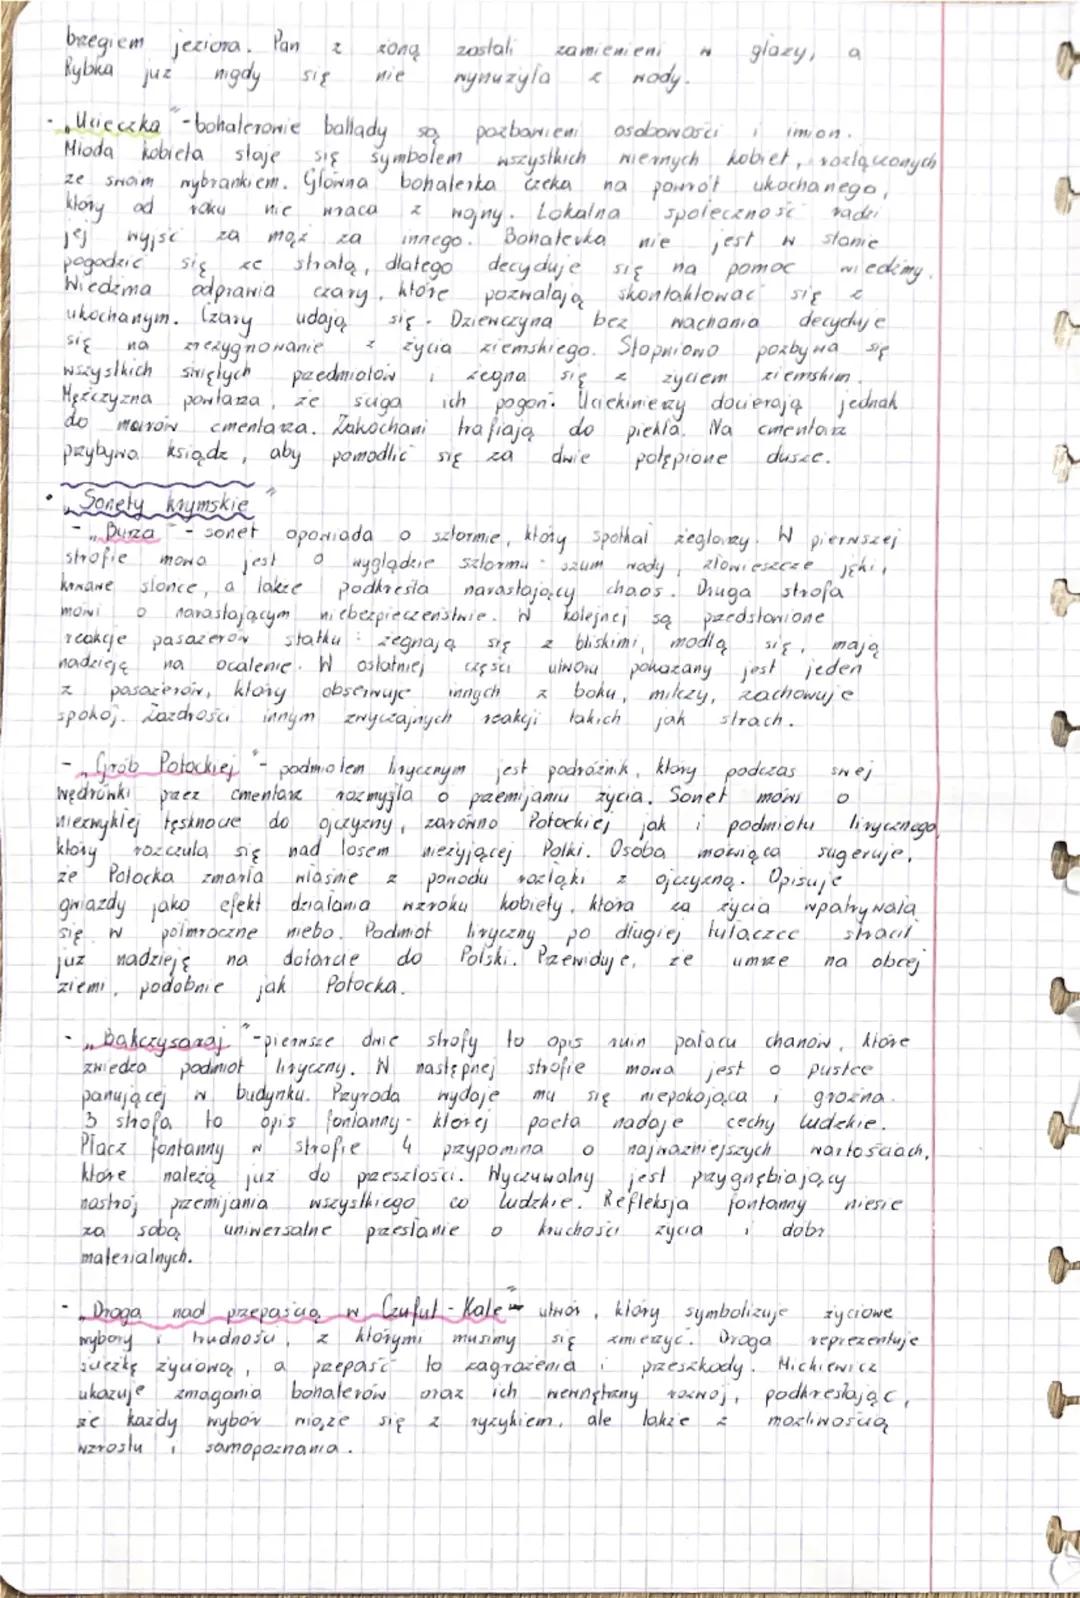 brzegiem jeziora. Pan z żoną zostali zamienieni w głazy, a
Rybka już nigdy się nie wynużyła z wody.
- „Ucieczka" - bohaterowie ballady są pozbawieni osobowości i imion.
Młoda kobieta staje się symbolem wszystkich wiernych kobiet, rozłączonych
ze swoim wybrankiem. Główna bohaterka czeka na powrót ukochanego,
który od roku nie wraca z wojny. Lokalna społeczność radzi
jej wyjść za mąż za innego. Bohaterka nie jest w stanie
pogodzić się ze stratą, dlatego decyduje się na pomoc wiedźmy.
Wiedźma odprawia czary, które pozwalają skontaktować się z
ukochanym. Czary udają się. Dziewczyna bez wachania decyduje
się na zrezygnowanie z życia ziemskiego. Stopniowo pozbywa się
wszystkich świętych przedmiotów i żegna się z życiem ziemskim.
Mężczyzna powtarza, że ściga ich pogoń. Uciekinierzy docierają jednak
do murów cmentarza. Zakochani trafiają do piekła. Na cmentarz
przybywa ksiądz, aby pomodlić się za dwie potępione dusze.
• „Sonety krymskie"
- „Burza" - sonet opowiada o sztormie, który spotkał żeglarzy. W pierwszej
strofie mowa jest o wyglądzie sztormu - szum wody, złowieszcze jęki,
krwawe słońce, a także podkreśla narastający chaos. Druga strofa
mówi o narastającym niebezpieczeństwie. W kolejnej są przedstawione
reakcje pasażerów statku: żegnają się z bliskimi, modlą się, mają
nadzieję na ocalenie. W ostatniej części utworu pokazany jest jeden
z pasażerów, który obserwuje innych z boku, milczy, zachowuje
spokój. Zazdrości innym zwyczajnych reakcji takich jak strach.
- „Grób Potockiej" - podmiotem lirycznym jest podróżnik, który podczas swej
wędrówki przez cmentarz rozmyśla o przemijaniu życia. Sonet mówi o
niezwykłej tęsknocie do ojczyzny, zarówno Potockiej jak i podmiotu lirycznego,
który rozczula się nad losem nieżyjącej Polki. Osoba mówiąca sugeruje,
że Potocka zmarła właśnie z powodu rozłąki z ojczyzną. Opisuje
gwiazdy jako efekt działania wzroku kobiety, która za życia wpatrywała
się w półmroczne niebo. Podmiot liryczny po długiej tułaczce stracił
już nadzieję na dotarcie do Polski. Przewiduje, że umrze na obcej
ziemi, podobnie jak Potocka.
- „Bakczysaraj" - pierwsze dwie strofy to opis ruin pałacu chanów, które
zwiedza podmiot liryczny. W następnej strofie mowa jest o pustce
panującej w budynku. Przyroda wydaje mu się niepokojąca i groźna.
3 strofa to opis fontanny - której poeta nadaje cechy ludzkie.
Płacz fontanny w strofie 4 przypomina o najważniejszych wartościach,
które należą już do przeszłości. Wyczuwalny jest przygnębiający
nastrój przemijania wszystkiego co ludzkie. Refleksja fontanny niesie
za sobą uniwersalne przesłanie o kruchości życia i dóbr
materialnych.
- „Droga nad przepaścią w Czufut-Kale" - utwór, który symbolizuje życiowe
wybory i trudności, z którymi musimy się zmierzyć. Droga reprezentuje
ścieżkę życiową, a przepaść to zagrożenia i przeszkody. Mickiewicz
ukazuje zmagania bohaterów oraz ich wewnętrzny rozwój, podkreślając,
że każdy wybór wiąże się z ryzykiem, ale także z możliwością
wzrostu i samopoznania.